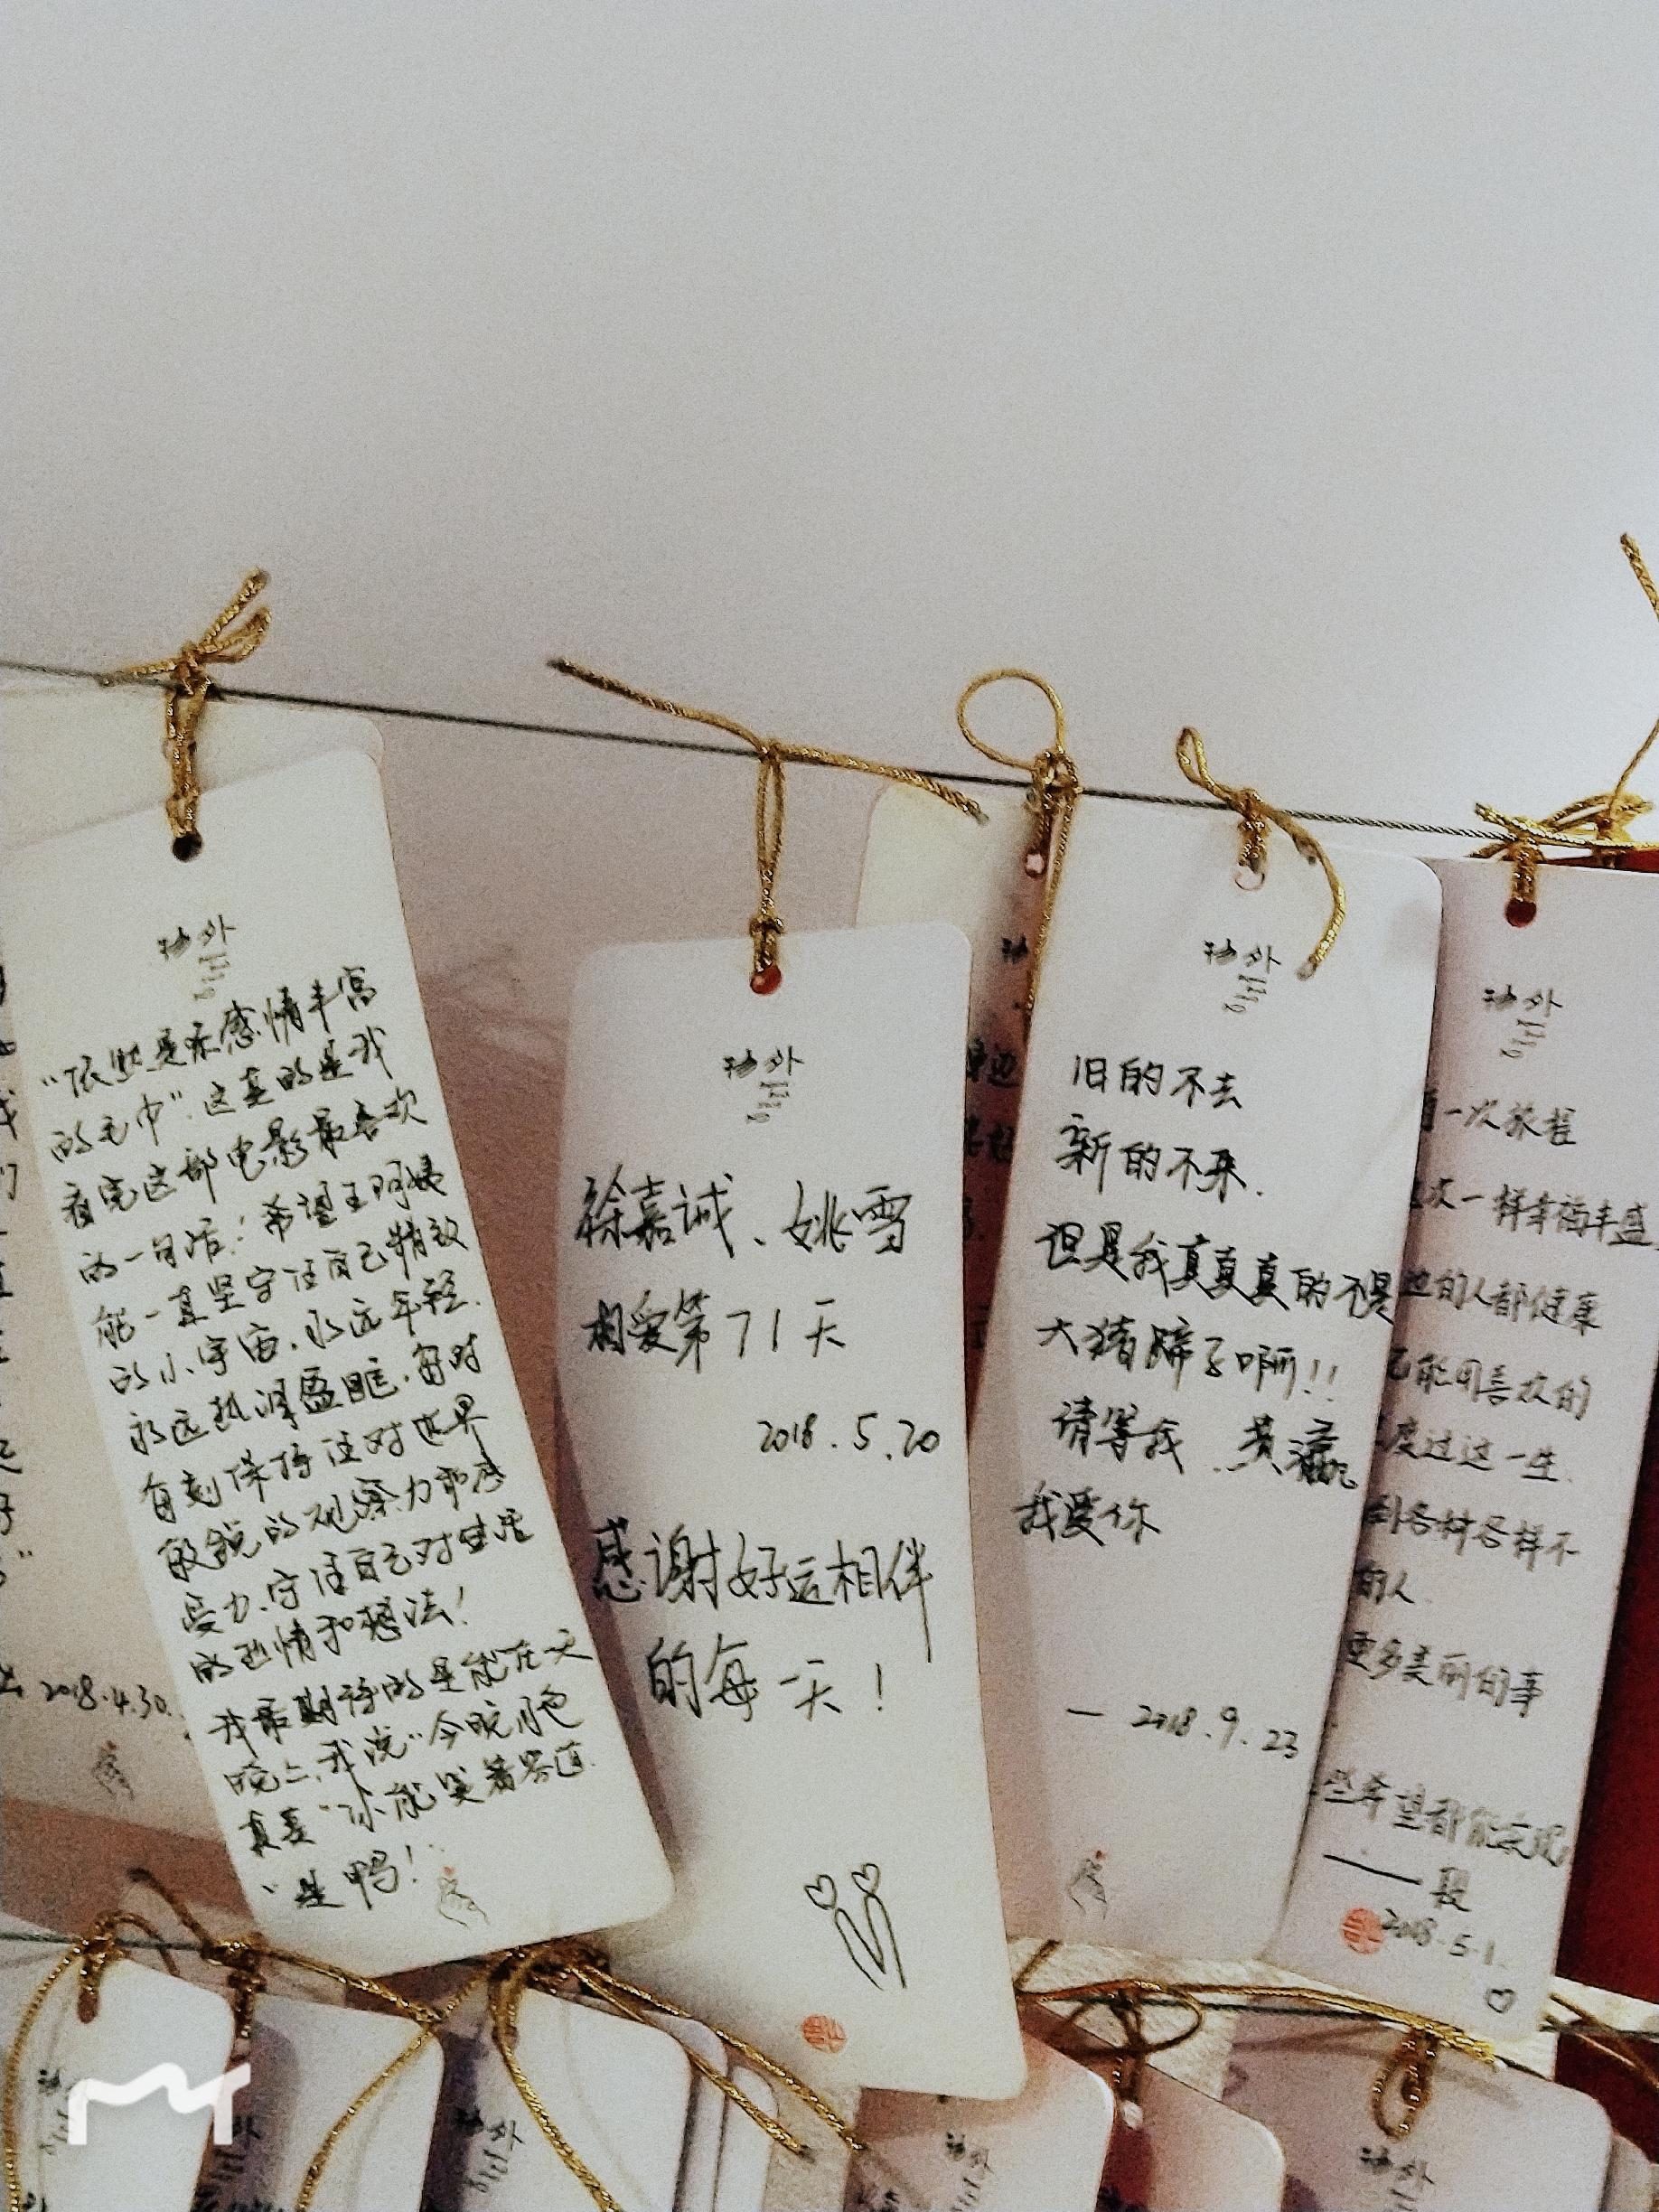 "依然是条感情丰富
的毛巾".这真的是我
看完这部电影最喜欢
的一句话!希望王阿姨
能一直坚守住自己精致
的小宇宙.永远年轻.
永远热泪盈眶.每时
每刻保持住对世界
敏锐的观察力和感
受力.守住自己对生活
的热情和想法!
我最期待的是能在一天
晚上,我说"今晚月色
真美"你能笑着答道
"是鸭!
2018.4.30.
徐嘉诚、姚雪
相爱第71天
2018.5.20
感谢好运相伴
的每一天!
旧的不去
新的不来.
但是我真真真的不是
大猪蹄子啊!!
请等我.黄瀛
我爱你
— 2018.9.23
一次旅程
次一样幸福丰盛
边的人都健康
己能用喜欢的
度过这一生.
到各种各样不
的人.
更多美丽的事
些希望都能实现
——段
2018.5.1.